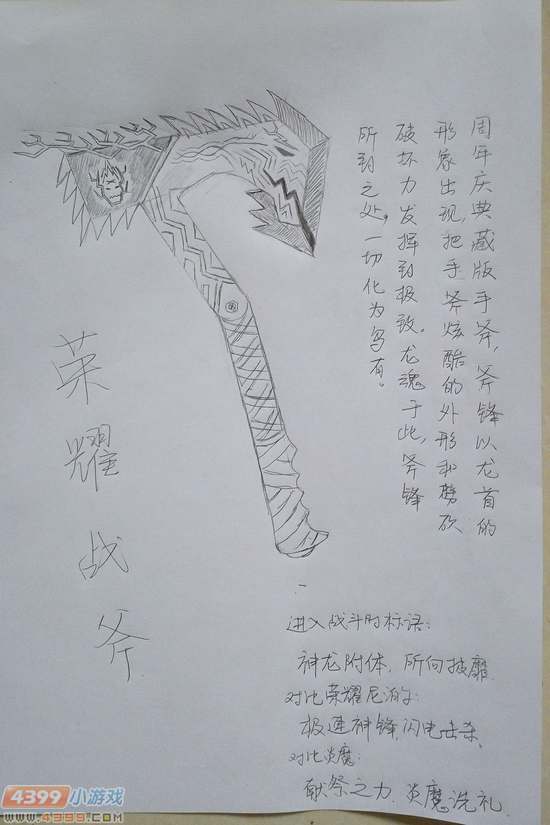 周年庆典藏版手斧，斧锋以龙首的
形象出现把手斧炫酷的外形和劈砍
破坏力发挥到极致。龙魂于此，斧锋
所到之处，一切化为乌有。
荣耀战斧
进入战斗时标语：
神龙附体，所向披靡
对比荣耀尼泊尔：
极速神锋，闪电击杀、
对比炎魔：
献祭之力、炎魔洗礼
4399小游戏
www.4399.com